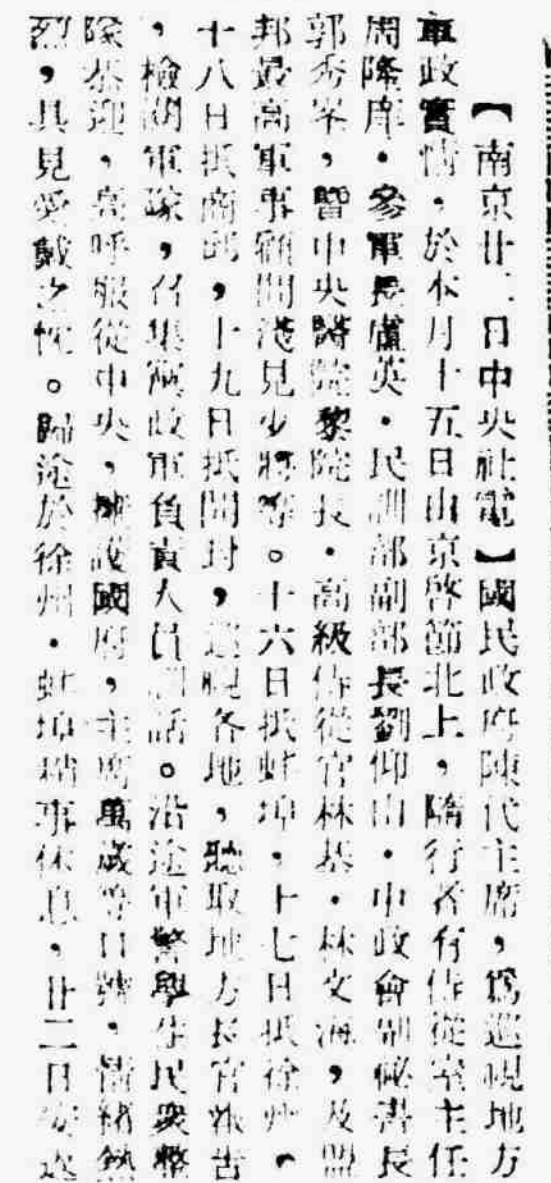 【南京廿二日中央社電】國民政府陳代主席，爲巡視地方
軍政實情，於本月十五日由京啓節北上，隨行者有侍從室主任
周隆庠·參軍長盧英·民訓部副部長劉仰山·中政會副秘書長
郭秀峯，暨中央醫院黎院長·高級侍從官林基·林文海，及盟
邦最高軍事顧問淺見少將等。十六日抵蚌埠，十七日抵徐州，
十八日抵商邱，十九日抵開封，巡視各地，聽取地方長官報告
，檢閱軍隊，召集黨政軍負責人員訓話。沿途軍警學生民眾整
隊恭迎，高呼服從中央，擁護國府，主席萬歲等口號，情緒熱
烈，具見愛戴之忱。歸途於徐州·蚌埠稍事休息，廿二日安返